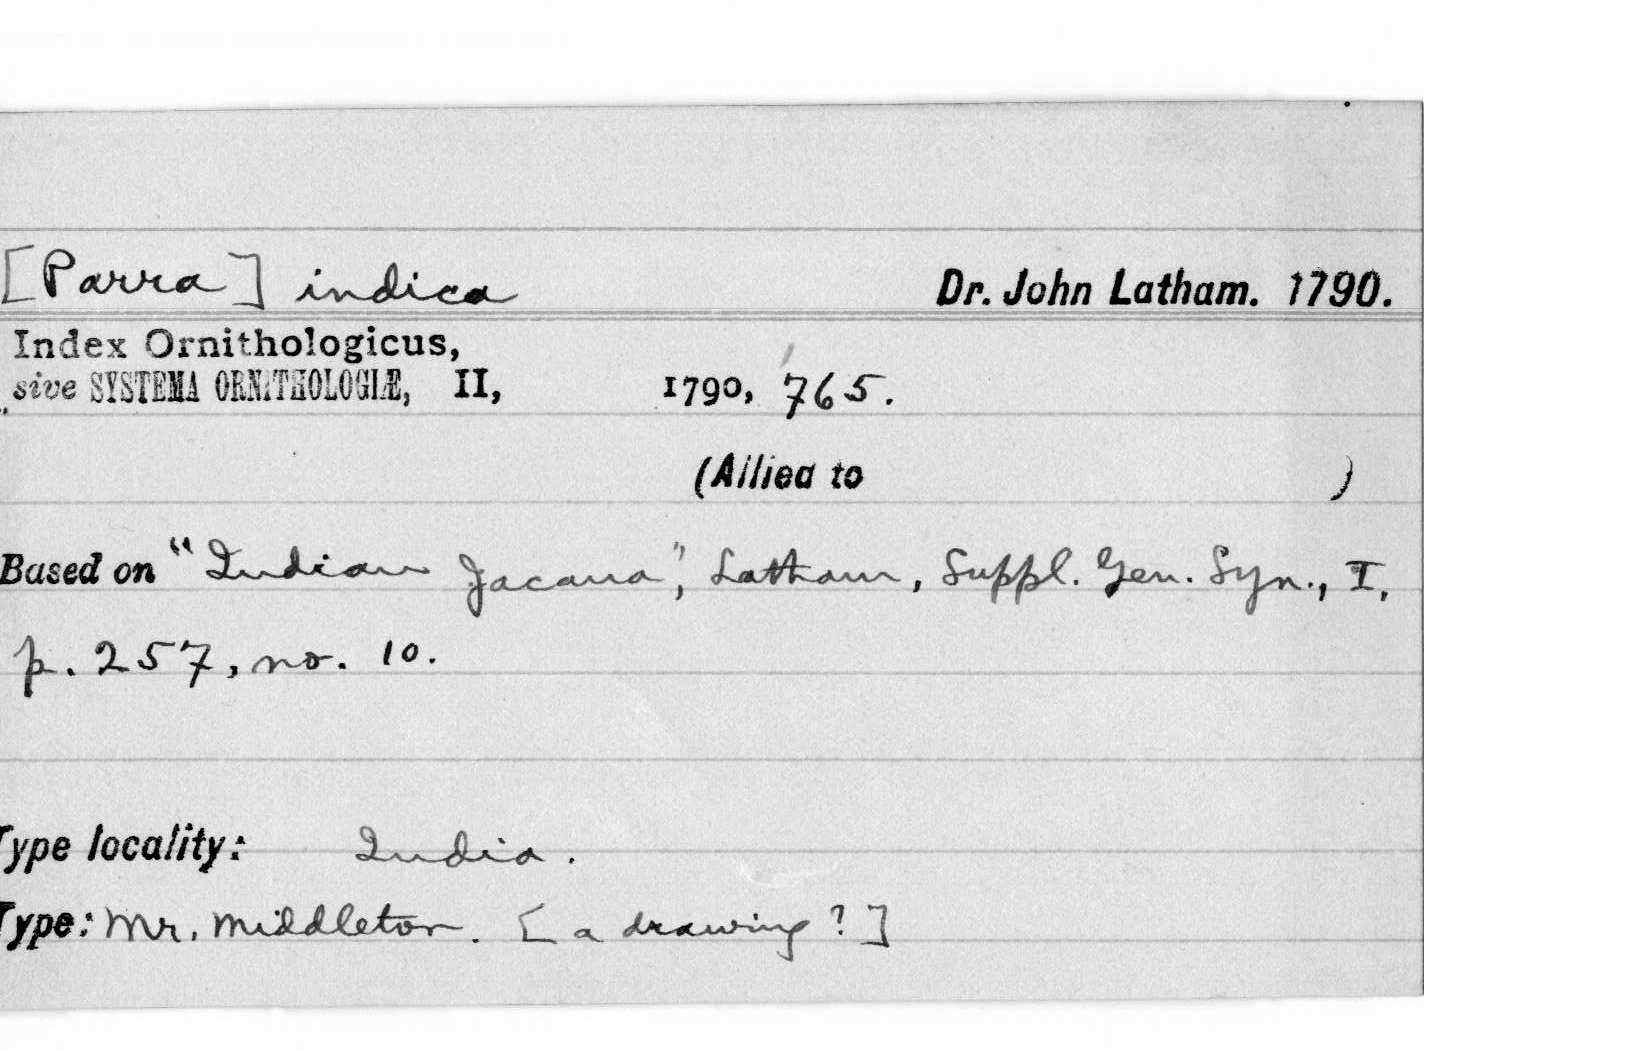 [Parra] indica Dr. John Latham. 1790.
Index Ornithologicus,
sive SYSTEMA ORNITHOLOGIÆ, II, 1790, 765.
(Allied to )
Based on "Indian Jacana", Latham, Suppl. Gen. Syn., I,
p. 257, no. 10.
Type locality: India.
Type: Mr. Middleton. [a drawing?]